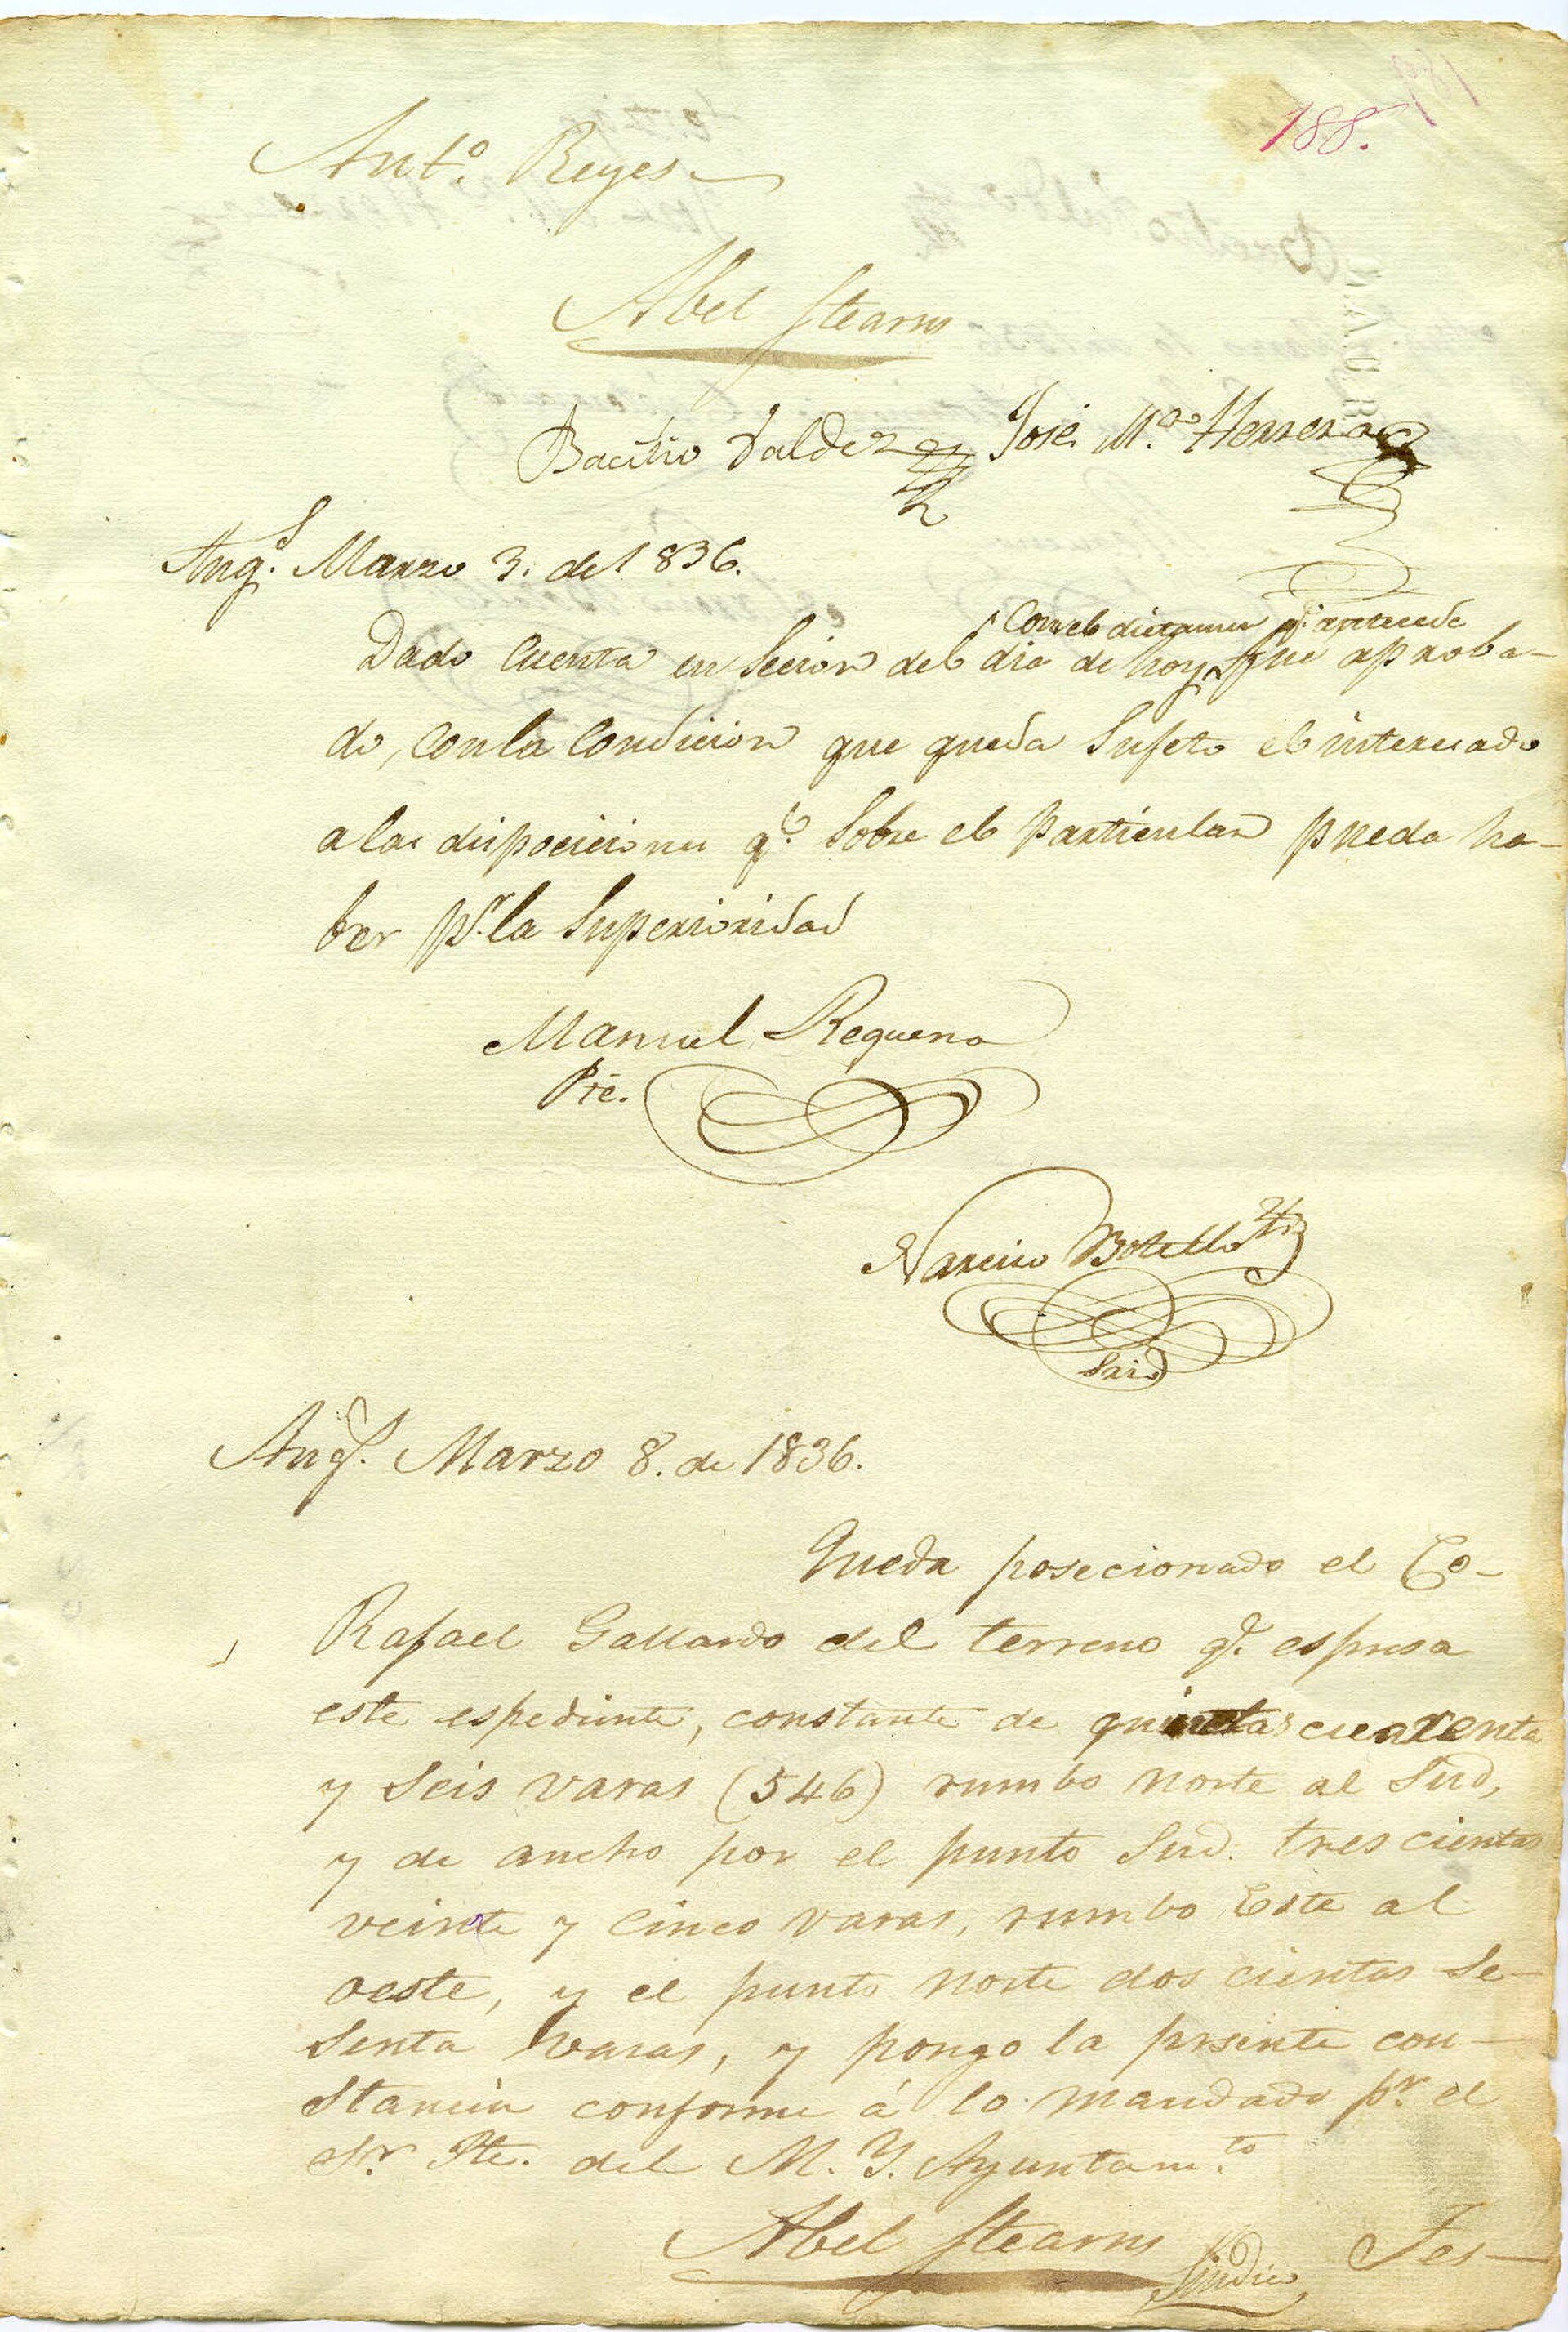 188.
Anto. Reyes
Abel Stearns
Bacilio Valdez José M.a Herrera
Angs. Marzo 3. de 1836.
con el dictamen q.e antecede
Dado cuenta en Secion del dia de hoy fue aproba-
do, con la condicion que queda sugeto el interesado
a las disposiciones q.e sobre el particular pueda ha-
ber p.r la Superioridad
Manuel Requena
Pte.
Narciso Botello
Srio
Angs. Marzo 8. de 1836.
Queda posecionado el Co-
Rafael Gallardo del terreno q.e espresa
este espediente, constante de quintas cuarenta
y seis varas (546) rumbo norte al Sud,
y de ancho por el punto Sud. tres cientas
veinte y cinco varas, rumbo Este al
oeste, y el punto norte dos cientas se-
senta varas, y pongo la presente con-
stancia conforme á lo mandado p.r el
Sr. Pte. del M. Y. Ayuntam.to
Abel Stearns
Sindico
Tes-